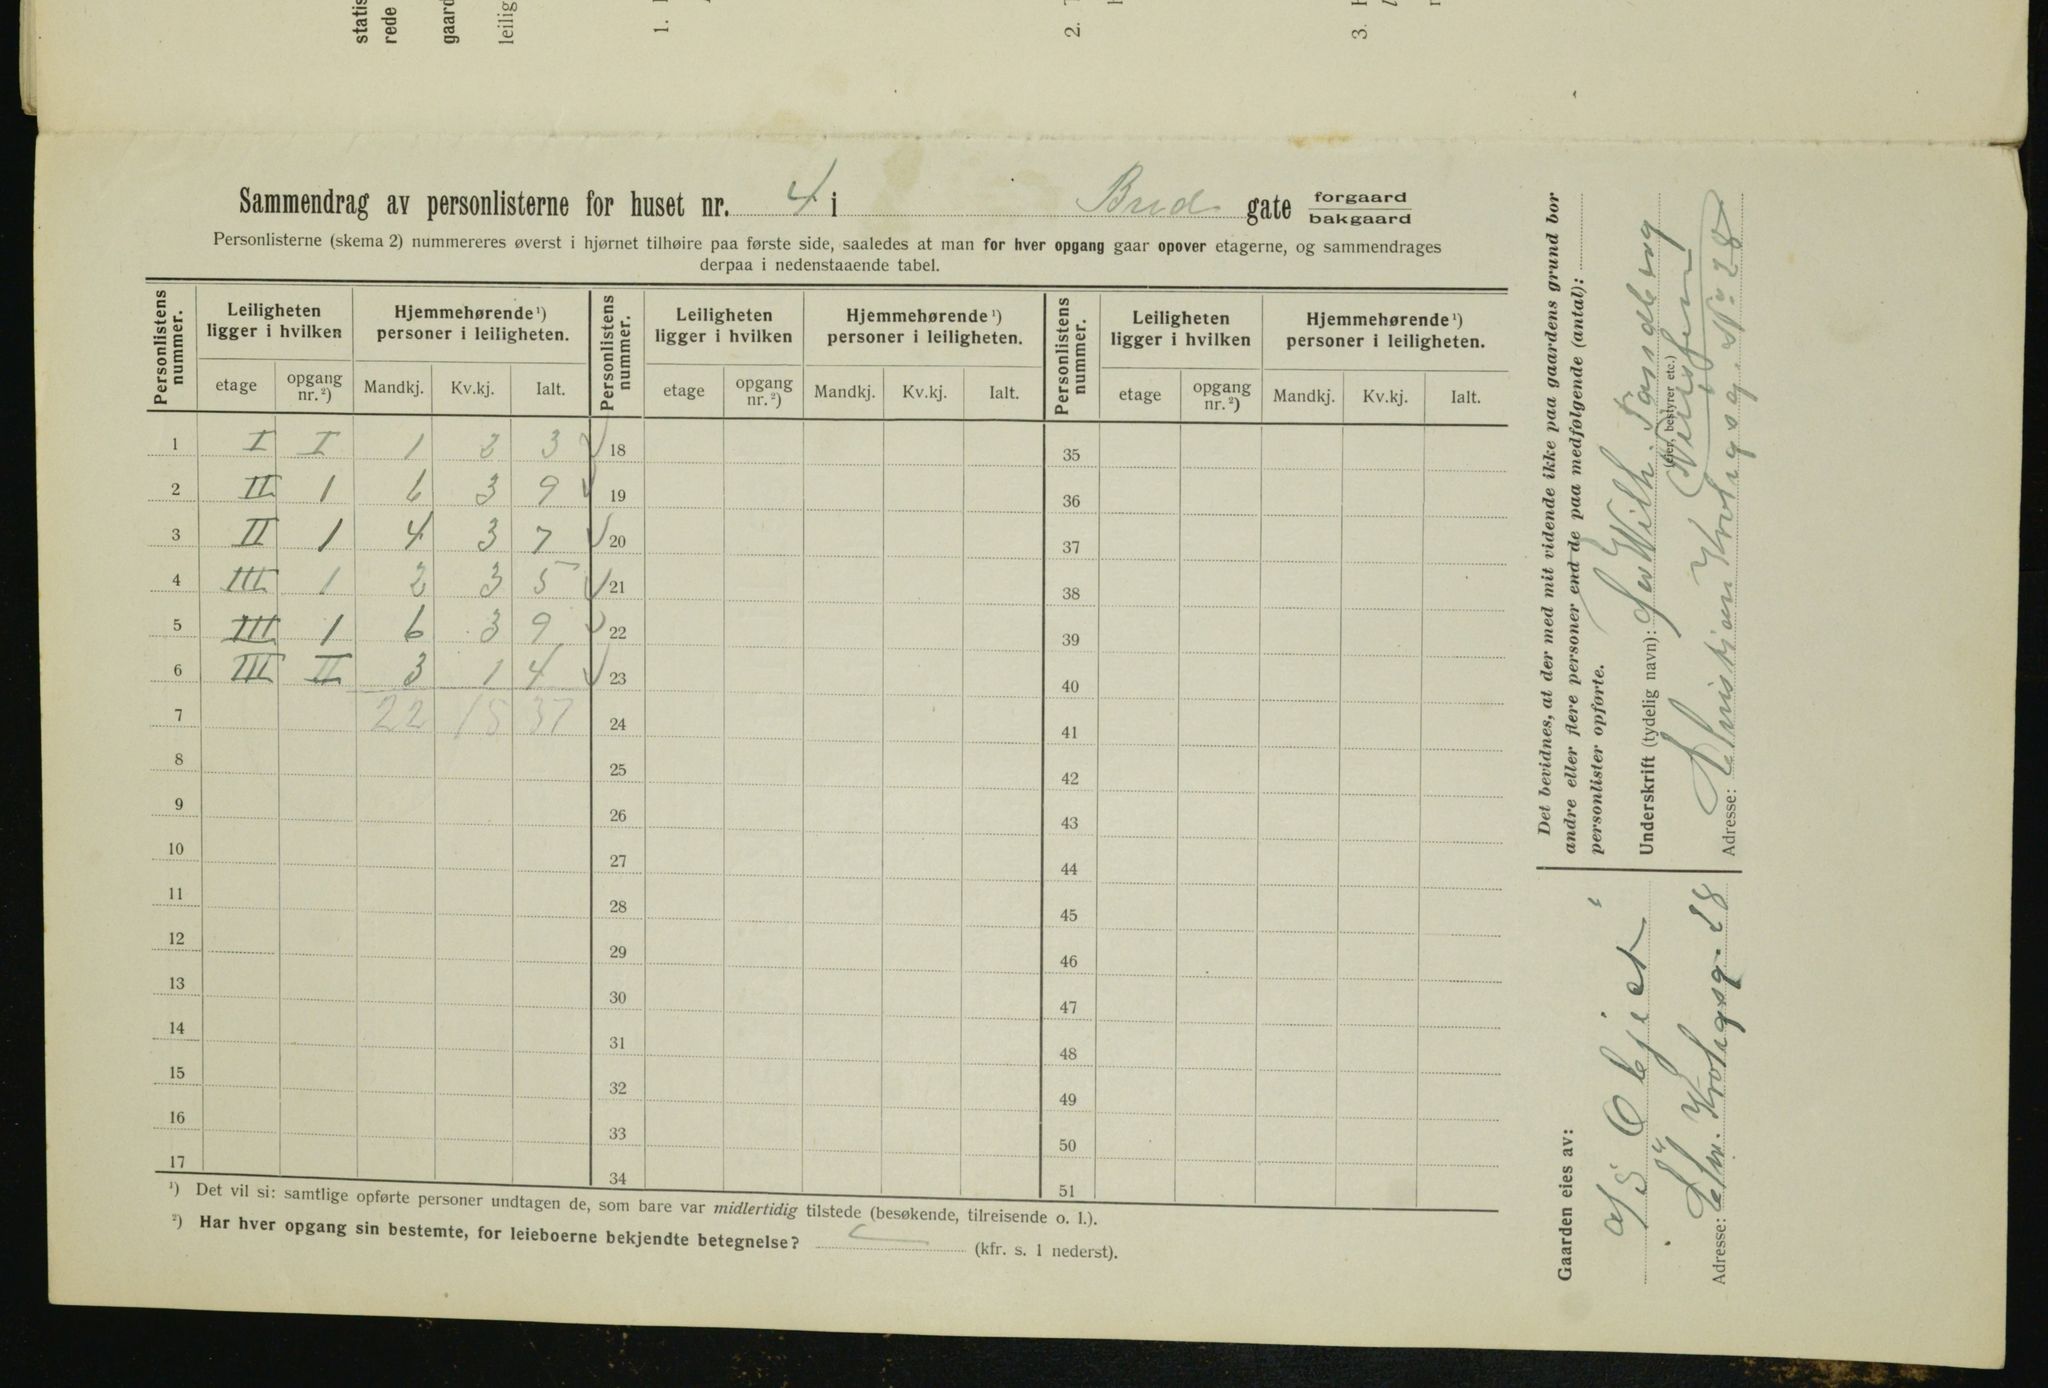 statis
rede
gaard
leilig
1.
2.
3.
Sammendrag av personlisterne for huset nr. 4 i Bred gate forgaard
bakgaard
Personlisterne (skema 2) nummereres øverst i hjørnet tilhøire paa første side, saaledes at man for hver opgang gaar opover etagerne, og sammendrages
derpaa i nedenstaaende tabel.
Personlistens nummer. Leiligheten ligger i hvilken Hjemmehørende¹) personer i leiligheten. Personlistens nummer. Leiligheten ligger i hvilken Hjemmehørende¹) personer i leiligheten. Personlistens nummer. Leiligheten ligger i hvilken Hjemmehørende¹) personer i leiligheten.
etage opgang nr.²) Mandkj. Kv.kj. Ialt. etage opgang nr.²) Mandkj. Kv.kj. Ialt. etage opgang nr.²) Mandkj. Kv.kj. Ialt.
1 I I 1 2 3 ✓ 18 35
2 II 1 6 3 9 ✓ 19 36
3 II 1 4 3 7 ✓ 20 37
4 III 1 2 3 5 ✓ 21 38
5 III 1 6 3 9 ✓ 22 39
6 III II 3 1 4 ✓ 23 40
7 22 15 37 24 41
8 25 42
9 26 43
10 27 44
11 28 45
12 29 46
13 30 47
14 31 48
15 32 49
16 33 50
17 34 51
¹) Det vil si: samtlige opførte personer undtagen de, som bare var midlertidig tilstede (besøkende, tilreisende o. l.).
²) Har hver opgang sin bestemte, for leieboerne bekjendte betegnelse? (kfr. s. 1 nederst).
Det bevidnes, at der med mit vidende ikke paa gaardens grund bor
andre eller flere personer end de paa medfølgende (antal):
personlister opførte.
Underskrift (tydelig navn): Wilh. Sandberg
(eier, bestyrer etc.)
Adresse: Christian Krohgsg. No. 28
Gaarden eies av:
A/S Objet
Adresse: Chr. Krohgsg. 28